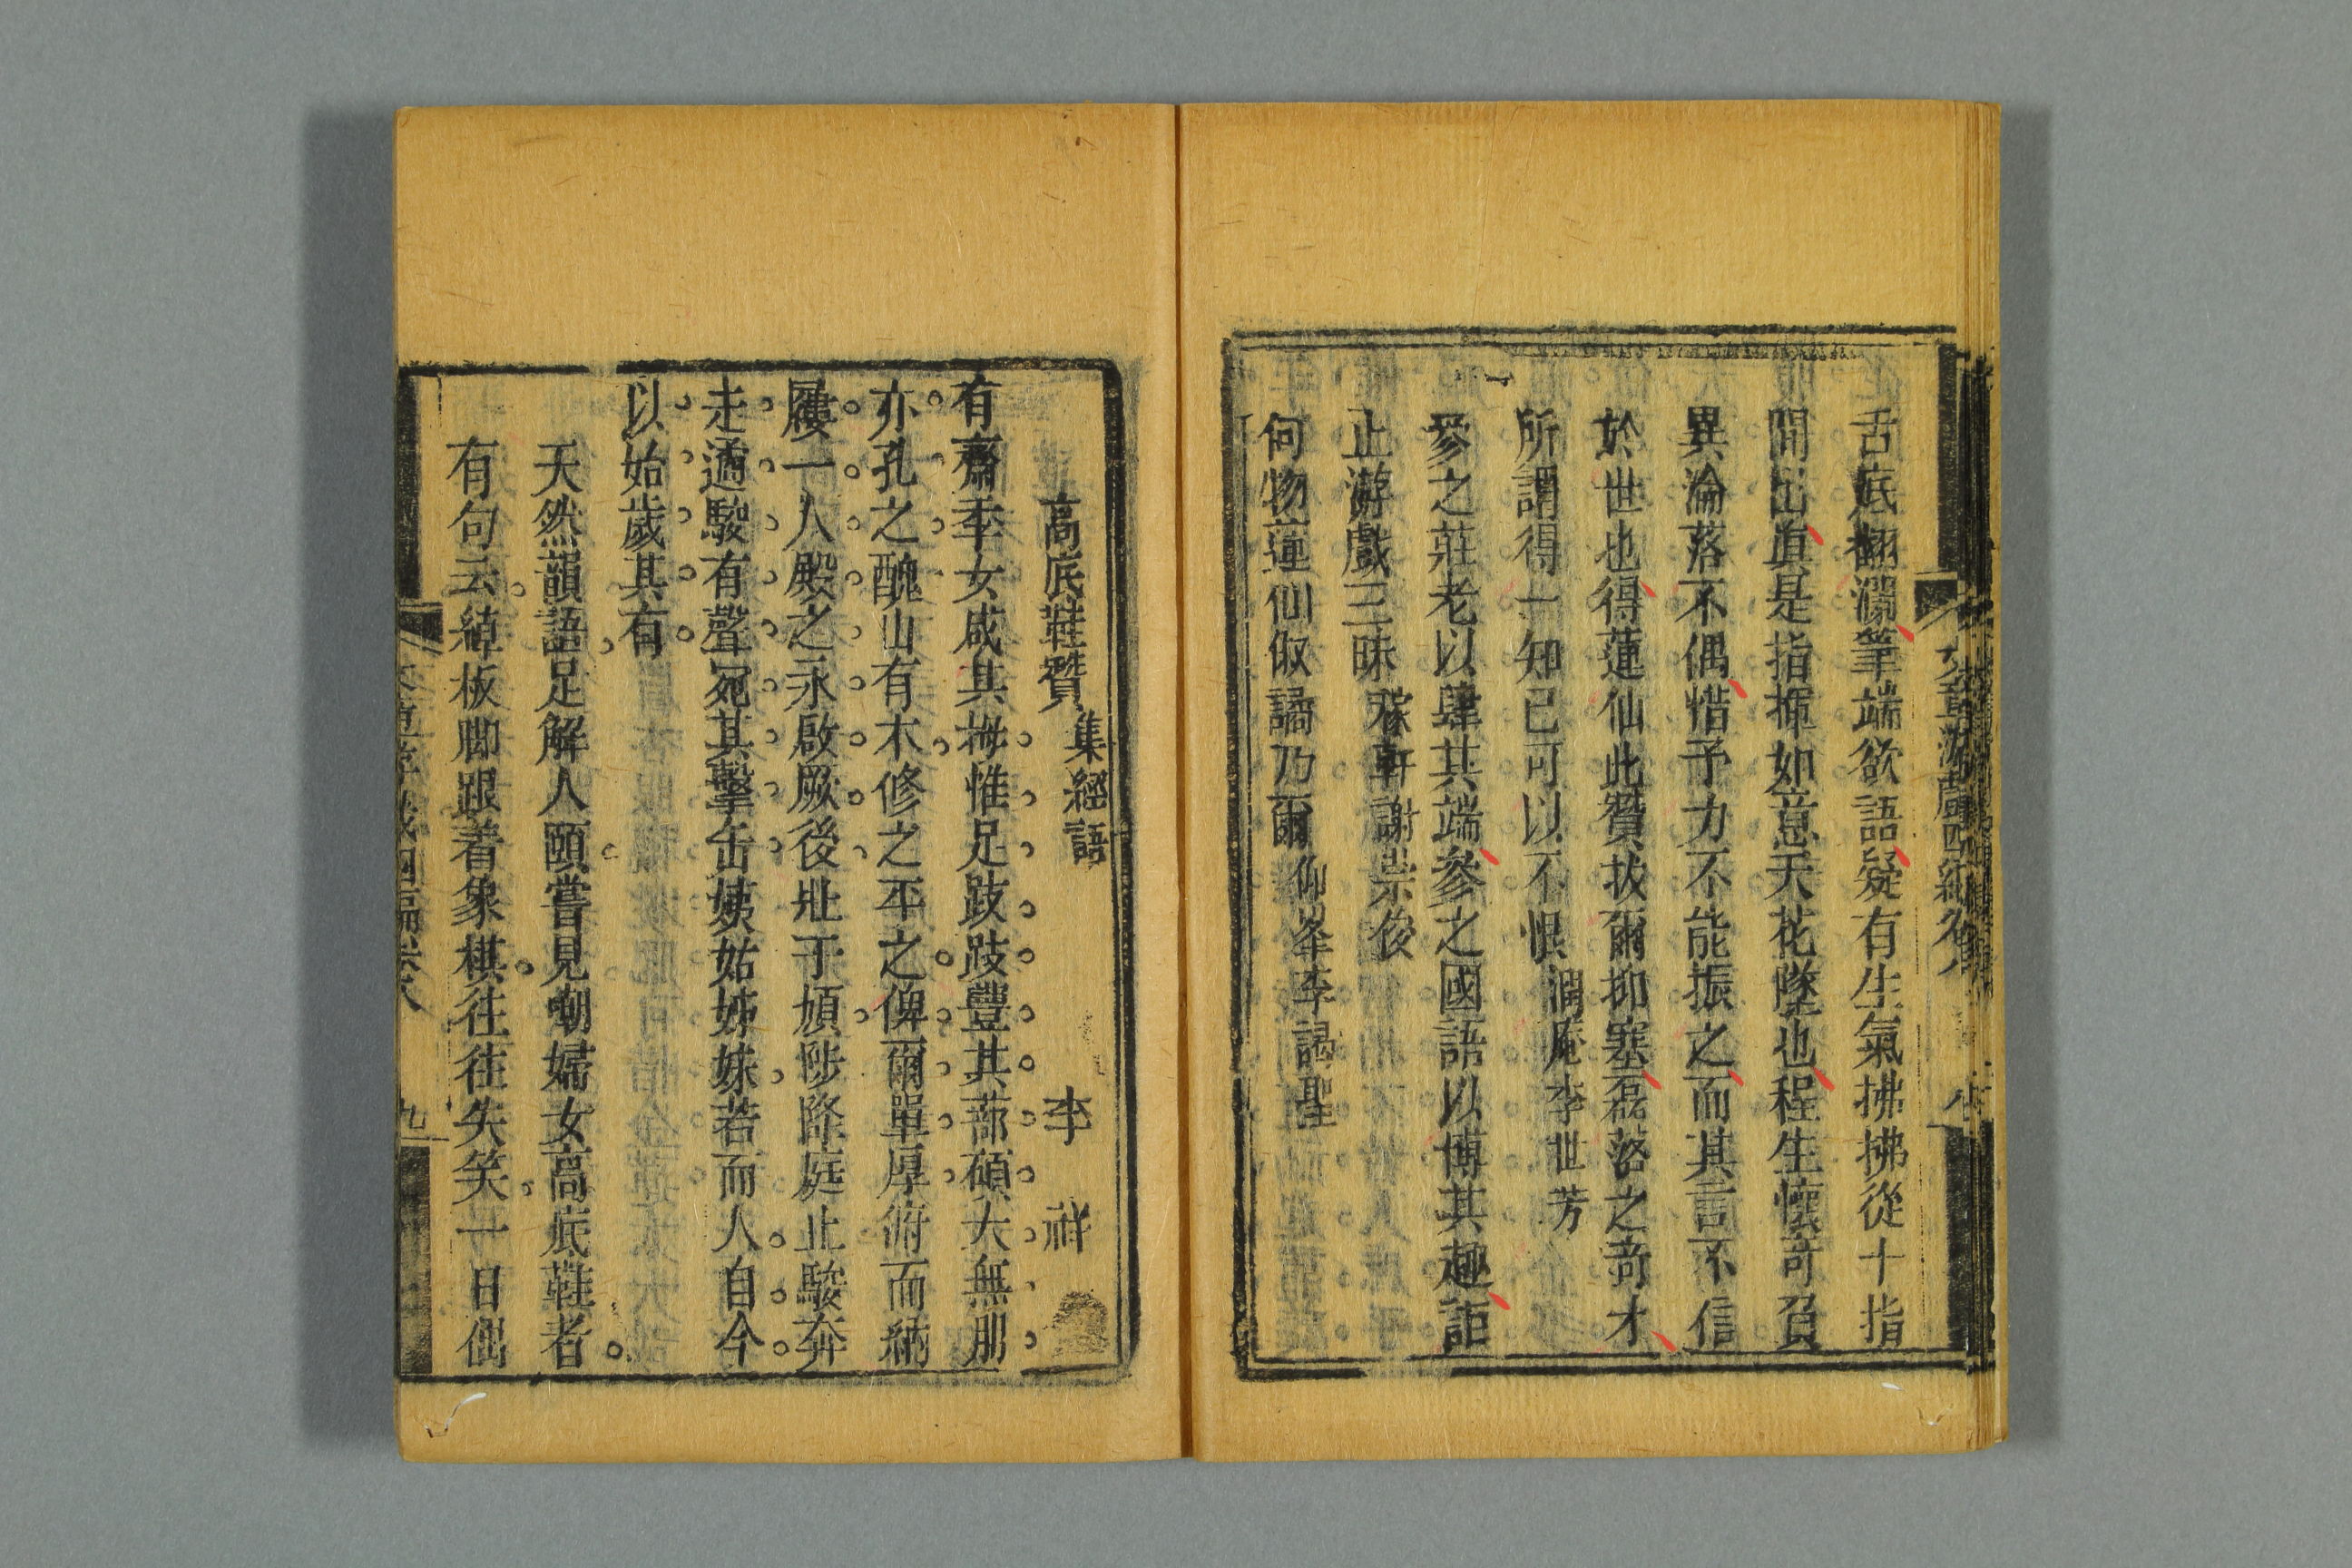 舌底翻瀾筆端欲語疑有生氣拂拂從十指
間出眞是指揮如意天花墜也程生懷奇負
異淪落不偶惜予力不能振之而其言不信
於世也得蓮仙此贊拔爾抑塞磊落之奇才
所謂得一知己可以不恨 澗庵李世芳
參之莊老以肆其端參之國語以博其趣詎
止游戲三昧 稼軒謝崇俊
何物蓮仙俶譎乃爾 仰峯李謁聖
高底鞋贊 集經語 李祥
有齋季女咸其拇惟足跂跂豐其蔀碩大無朋
亦孔之醜山有木修之平之俾爾單厚俯而納
屨一人殿之永啟厥後壯于頄陟降庭止駿奔
走遹駿有聲宛其擊缶姨姑姊妹若而人自今
以始歲其有
天然韻語足解人頤嘗見嘲婦女高底鞋者
有句云綽板脚跟着象棋往往失笑一日偶
文章游戲四編卷八 九